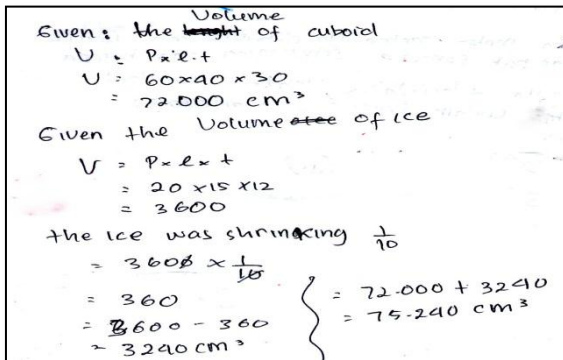 Volume
Given: the lenght of cuboid
V = P x l . t
V = 60 x 40 x 30
= 72.000 cm³
Given the Volume of ice
V = P x l x t
= 20 x 15 x 12
= 3600
the ice was shrinking 1/10
= 3600 x 1/10
= 360
= 3600 - 360
= 3240 cm³
= 72.000 + 3240
= 75.240 cm³